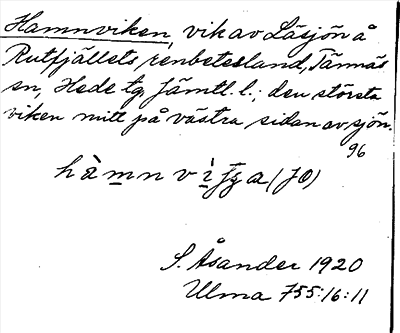 Hamnviken, vik av Läsjön å
Rutfjällets renbetesland, Tännäs
sn, Hede tg, Jämtl. l.; den största
viken mitt på västra sidan av sjön.
96
hàmnvìʃʒa (JO)
S. Åsander 1920
Ulma 755:16:11